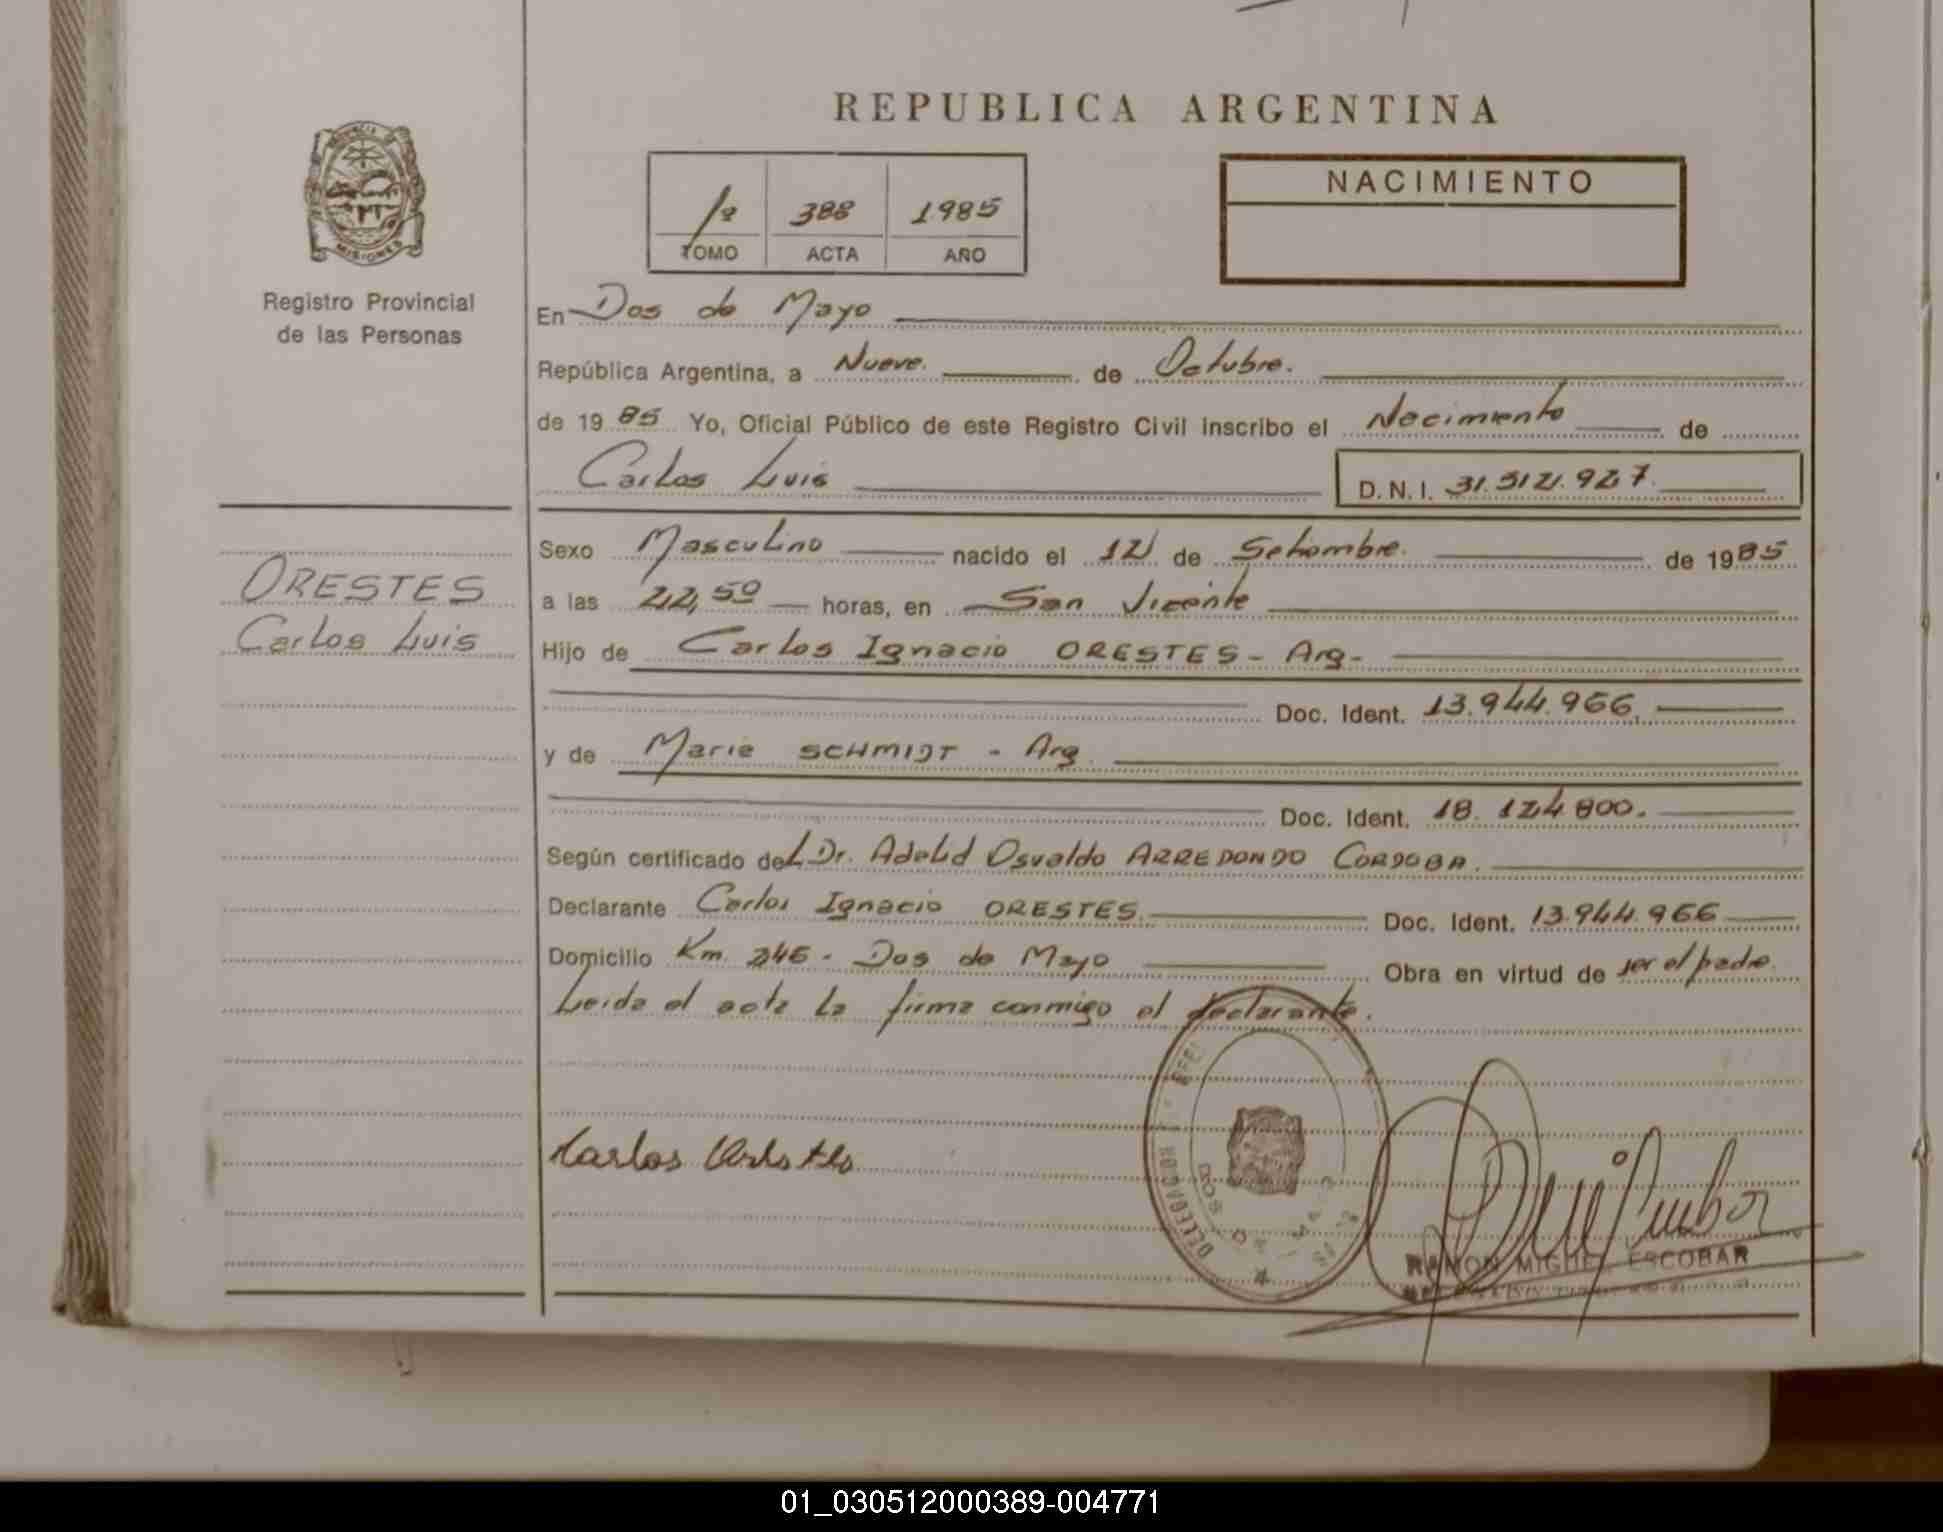 REPUBLICA ARGENTINA
PROVINCIA DE
MISIONES
Registro Provincial
de las Personas
1º 388 1985
TOMO ACTA AÑO
NACIMIENTO
En Dos de Mayo
República Argentina, a Nueve. de Octubre.
de 19 85 Yo, Oficial Público de este Registro Civil inscribo el Nacimiento de
Carlos Luis D.N.I. 31.512.927.
ORESTES
Carlos Luis
Sexo Masculino nacido el 12 de Setiembre. de 1985
a las 22,50 horas, en San Vicente
Hijo de Carlos Ignacio ORESTES - Arg-
Doc. Ident. 13.944.966.
y de Maria SCHMIDT - Arg.
Doc. Ident. 18.124.800.
Según certificado del Dr. Adelid Osvaldo ARREDONDO CORDOBA.
Declarante Carlos Ignacio ORESTES. Doc. Ident. 13.944.966
Domicilio Km. 246 - Dos de Mayo Obra en virtud de ser el padre.
Leida el acta la firma conmigo el declarante.
Carlos Orestes
DELEGACION
DOS DE MAYO
RAMON MIGUEL ESCOBAR
01_030512000389-004771